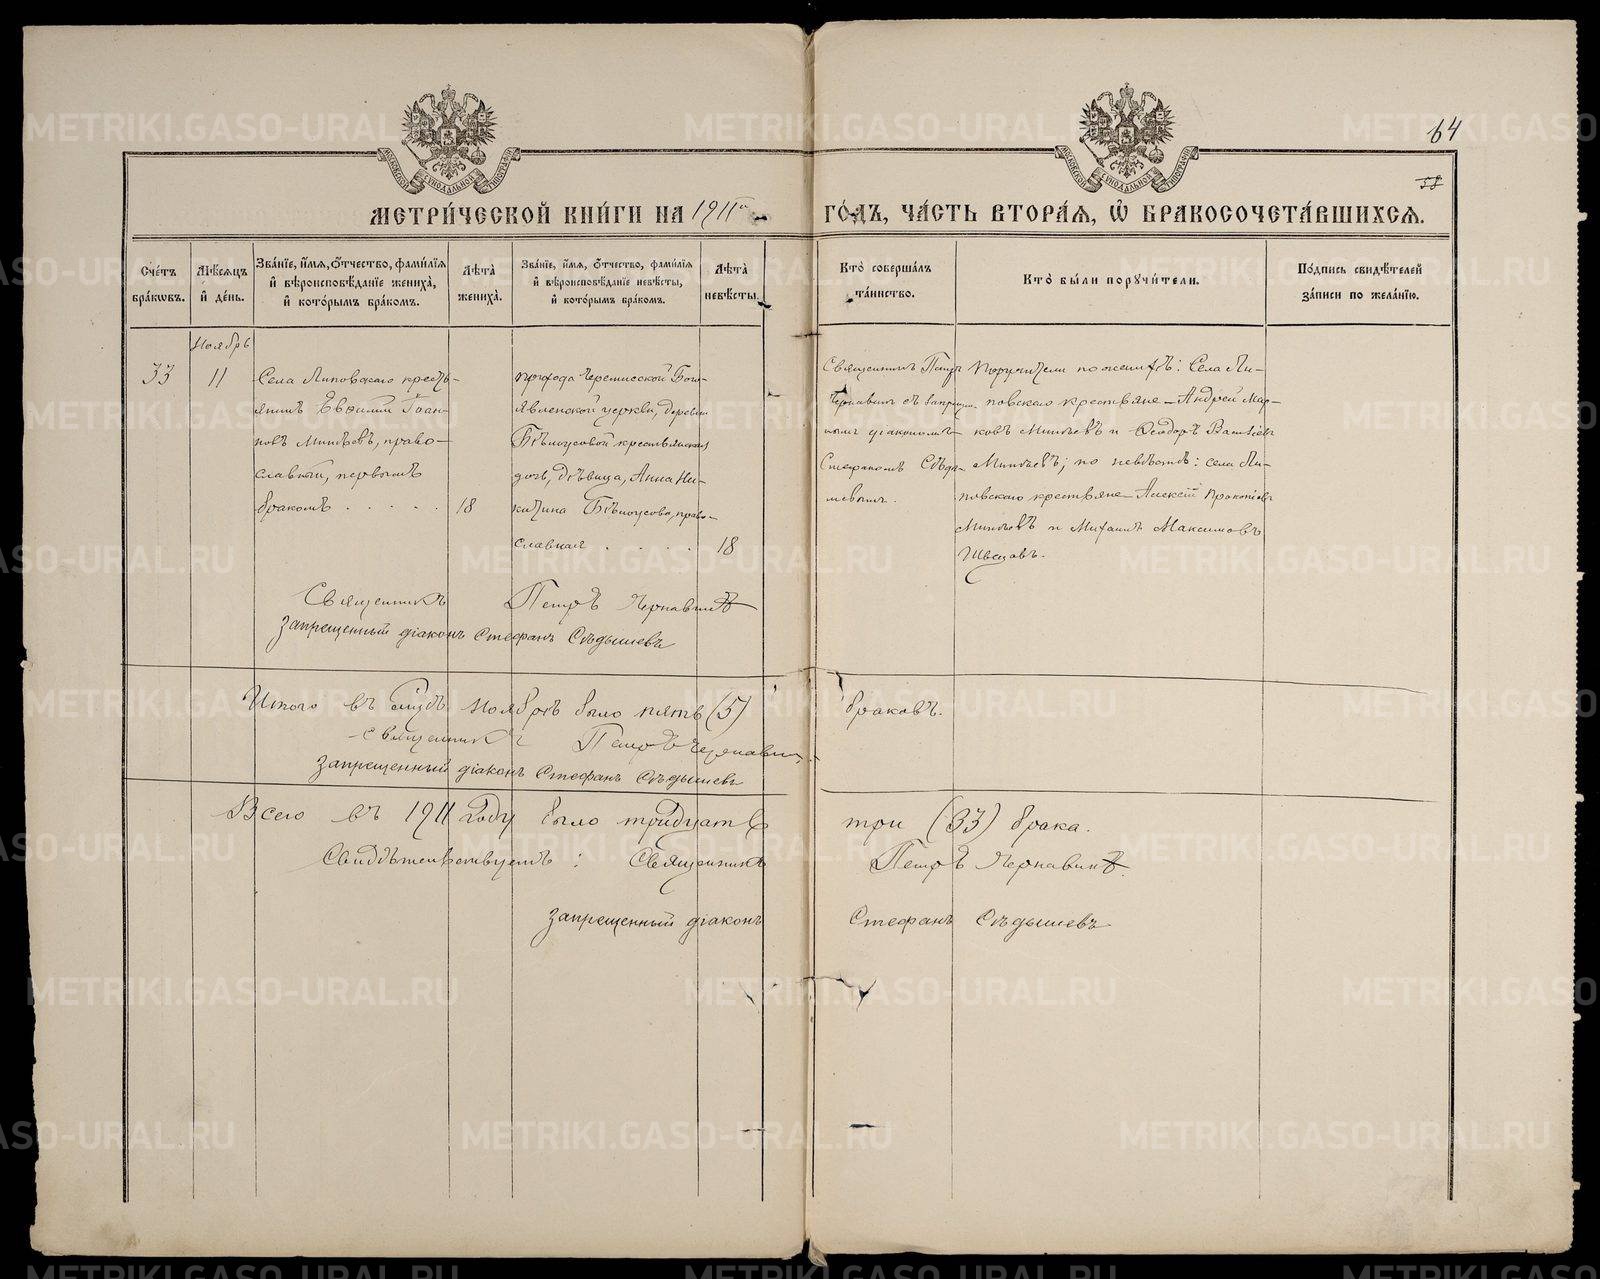 64
58
МОСКОВСКОЙ СѴНОДАЛЬНОЙ ТИПОГРАФІИ
МОСКОВСКОЙ СѴНОДАЛЬНОЙ ТИПОГРАФІИ
МЕТРИ́ЧЕСКОЙ КНИ́ГИ НА 1911й ГО́ДЪ, ЧА́СТЬ ВТОРА́Я, Ѡ҆ БРАКОСОЧЕТА́ВШИХСЯ.
Сче́тъ бра́кѡвъ.
Мѣ́сяцъ и҆ де́нь.
Зва́нїе, и҆́мя, ѻ҆́тчество, фами́лїя и҆ вѣроисповѣ́данїе жениха̀, и҆ кото́рымъ бра́комъ.
Лѣ́та жениха̀.
Зва́нїе, и҆́мя, ѻ҆́тчество, фами́лїя и҆ вѣроисповѣ́данїе невѣ́сты, и҆ кото́рымъ бра́комъ.
Лѣ́та невѣ́сты.
Кто̀ соверша́лъ та́инство.
Кто̀ бы́ли порꙋчи́тели.
По́дпись свидѣ́телей за́писи по жела́нїю.
Ноябрь
33
11
Села Липовскаго кресть-
янинъ Евѳимій Іоан-
новъ Миньевъ, право-
славный, первымъ
бракомъ . . . . .
18
прихода Черемисской Бого-
явленской церкви, деревни
Бѣлоусовой крестьянская
дочь, дѣвица, Анна Ни-
китина Бѣлоусова, право-
славная . . . .
18
Священникъ Петръ
Чернавинъ съ запрещен-
нымъ діакономъ
Стефаномъ Сѣды-
шевымъ.
Поручители по женихѣ: Села Ли-
повскаго крестьяне – Андрей Мар-
ковъ Миньевъ и Ѳеодоръ Васильевъ
Миньевъ; по невѣстѣ: села Ли-
повскаго крестьяне – Алексій Прокопіевъ
Миньевъ и Михаилъ Максимовъ
Швецовъ.
Священникъ Петръ Чернавинъ
Запрещенный діаконъ Стефанъ Сѣдышевъ
Итого въ ноябрѣ было пять (5) браковъ.
Священникъ Петръ Чернавинъ
Запрещенный діаконъ Стефанъ Сѣдышевъ
Всего въ 1911 году было тридцать три (33) брака.
Свидѣтельствуемъ: Священникъ Петръ Чернавинъ.
Запрещенный діаконъ Стефанъ Сѣдышевъ
METRIKI.GASO-URAL.RU